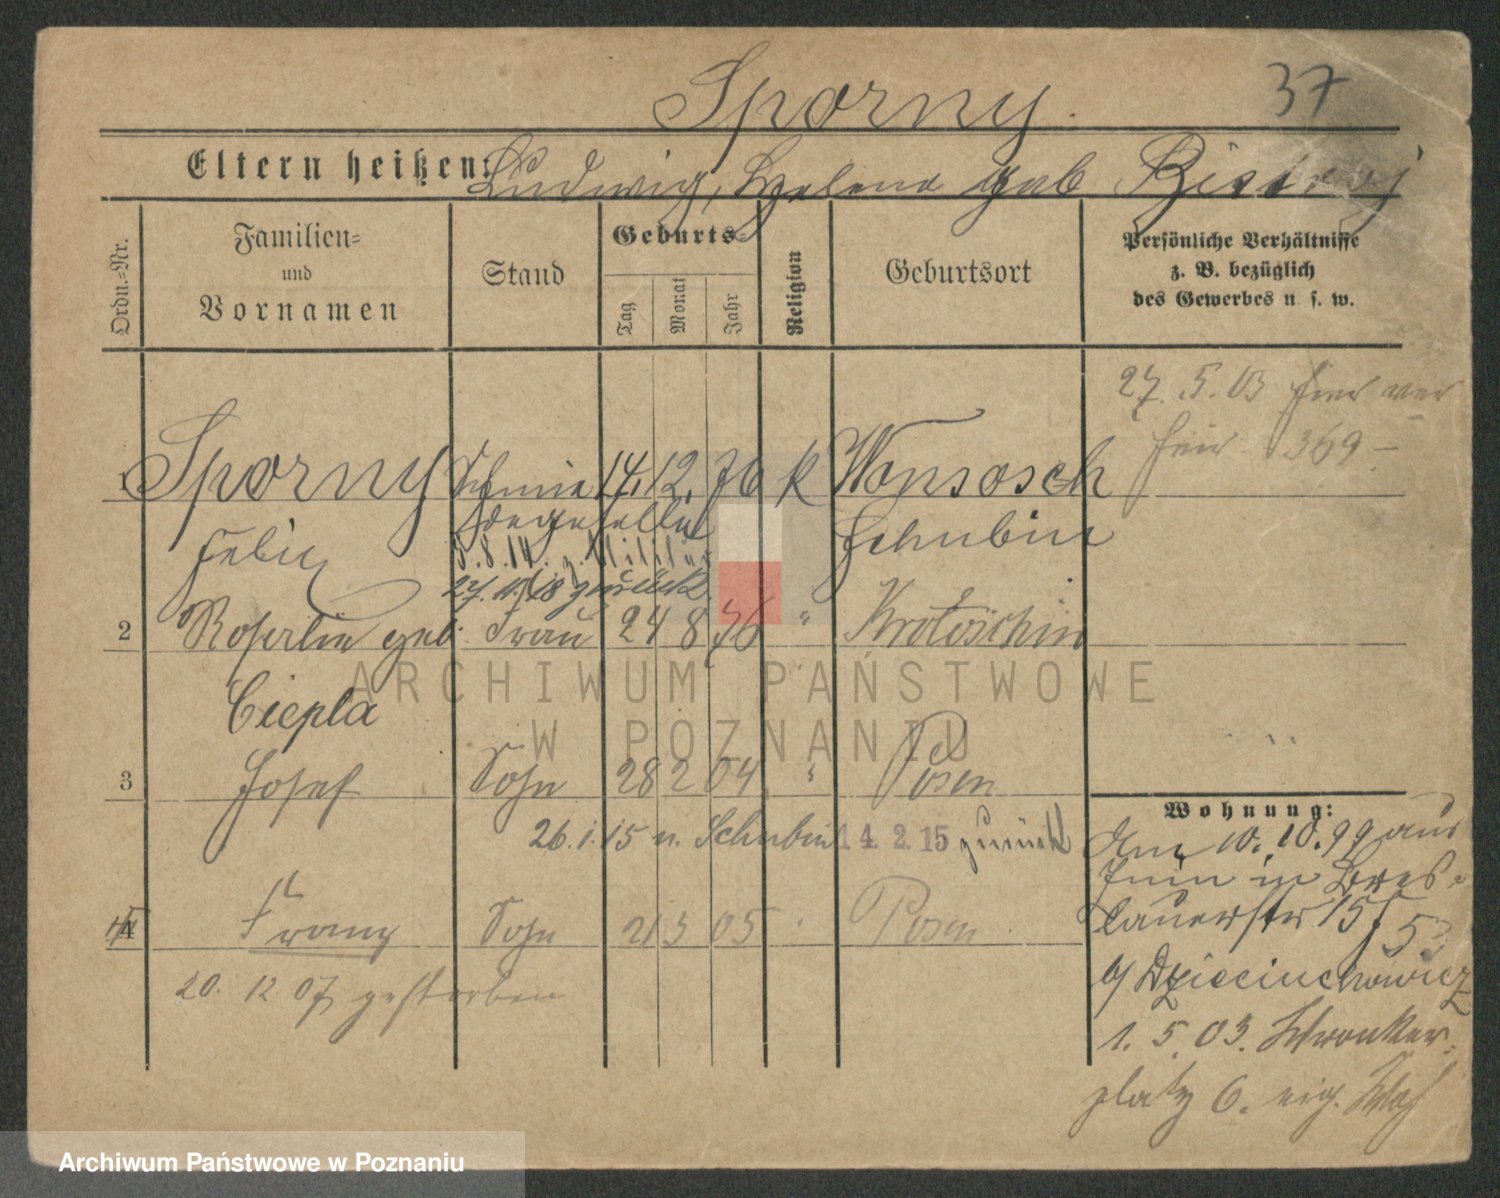 37
Sporny.
Eltern heißen: Ludwig, Helena geb Bistrej
Ordn.=Nr.
Familien=
und
Vornamen
Stand
Geburts=
Tag
Monat
Jahr
Religion
Geburtsort
Persönliche Verhältnisse
z. B. bezüglich
des Gewerbes u. s. w.
27. 5. 03
369
1 Sporny Schmie 14. 12. 76 k Wonsosch
Felix degeselle Schubin
5.8.14. z. Militär
27.11.18 zurück
2 Rosalie geb. Frau 24 8 76 " Krotoschin
Ciepla
3 Josef Sohn 28 2 04 " Posen
26. 1. 15 n. Schubin 14. 2. 15 zurück
4 Franz Sohn 21 3 05 " Posen
20. 12 07 gestorben
Wohnung:
Am 10. 10. 99 aus
Jnin in Bres=
lauerstr 15
b/ Dzieciuchowicz
1. 5. 03. Wronker=
platz 6. eig. Wo
ARCHIWUM PAŃSTWOWE
W POZNANIU
Archiwum Państwowe w Poznaniu